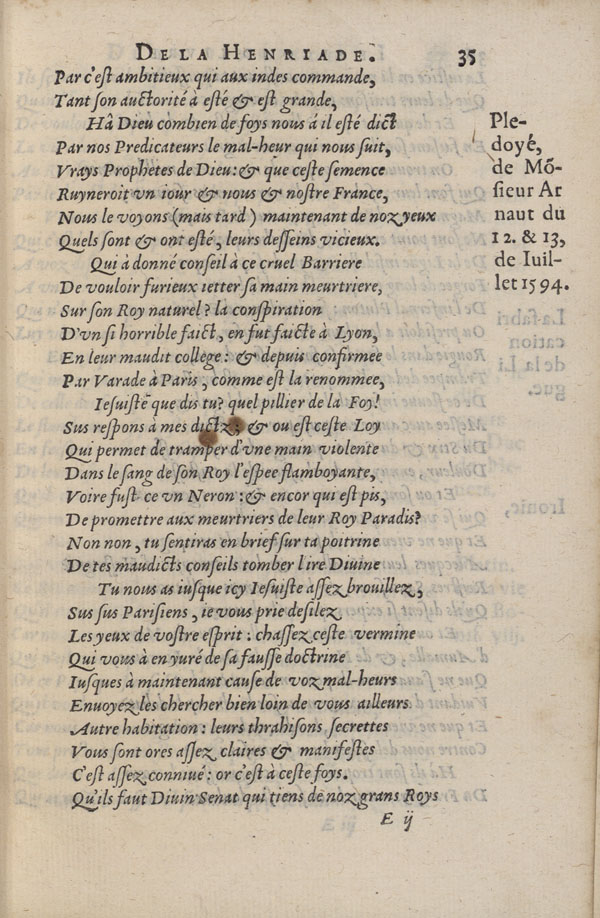 DE LA HENRIADE. 35
Par c'est ambitieux qui aux indes commande,
Tant son auctorité à esté & est grande,
Hâ Dieu combien de foys nous á il esté dict
Par nos Predicateurs le mal-heur qui nous suit,
Vrays Prophetes de Dieu: & que ceste semence
Ruyneroit vn iour & nous & nostre France,
Nous le voyons (mais tard) maintenant de noz yeux
Quels sont & ont esté, leurs desseins vicieux.
Qui à donné conseil à ce cruel Barriere
De vouloir furieux ietter sa main meurtriere,
Sur son Roy naturel? la conspiration
D'vn si horrible faict, en fut faicte à Lyon,
En leur maudit college: & depuis confirmee
Par Varade à Paris, comme est la renommee,
Iesuiste que dis tu? quel pillier de la Foy!
Sus respons à mes dictz, & ou est ceste Loy
Qui permet de tramper d'vne main violente
Dans le sang de son Roy l'espee flamboyante,
Voire fust ce vn Neron: & encor qui est pis,
De promettre aux meurtriers de leur Roy Paradis?
Non non, tu sentiras en brief sur ta poitrine
De tes maudicts conseils tomber l'ire Diuine
Tu nous as iusque icy Iesuiste assez brouillez,
Sus sus Parisiens, ie vous prie desilez
Les yeux de vostre esprit: chassez ceste vermine
Qui vous à enyuré de sa fausse doctrine
Iusques à maintenant cause de voz mal-heurs
Enuoyez les chercher bien loin de vous ailleurs
Autre habitation: leurs thrahisons secrettes
Vous sont ores assez claires & manifestes
C'est assez conniué: or c'est à ceste foys.
Qu'ils faut Diuin Senat qui tiens de noz grans Roys
E ij
Ple-
doyé,
de Mō-
sieur Ar
naut du
12. & 13,
de Iuil-
let 1594.